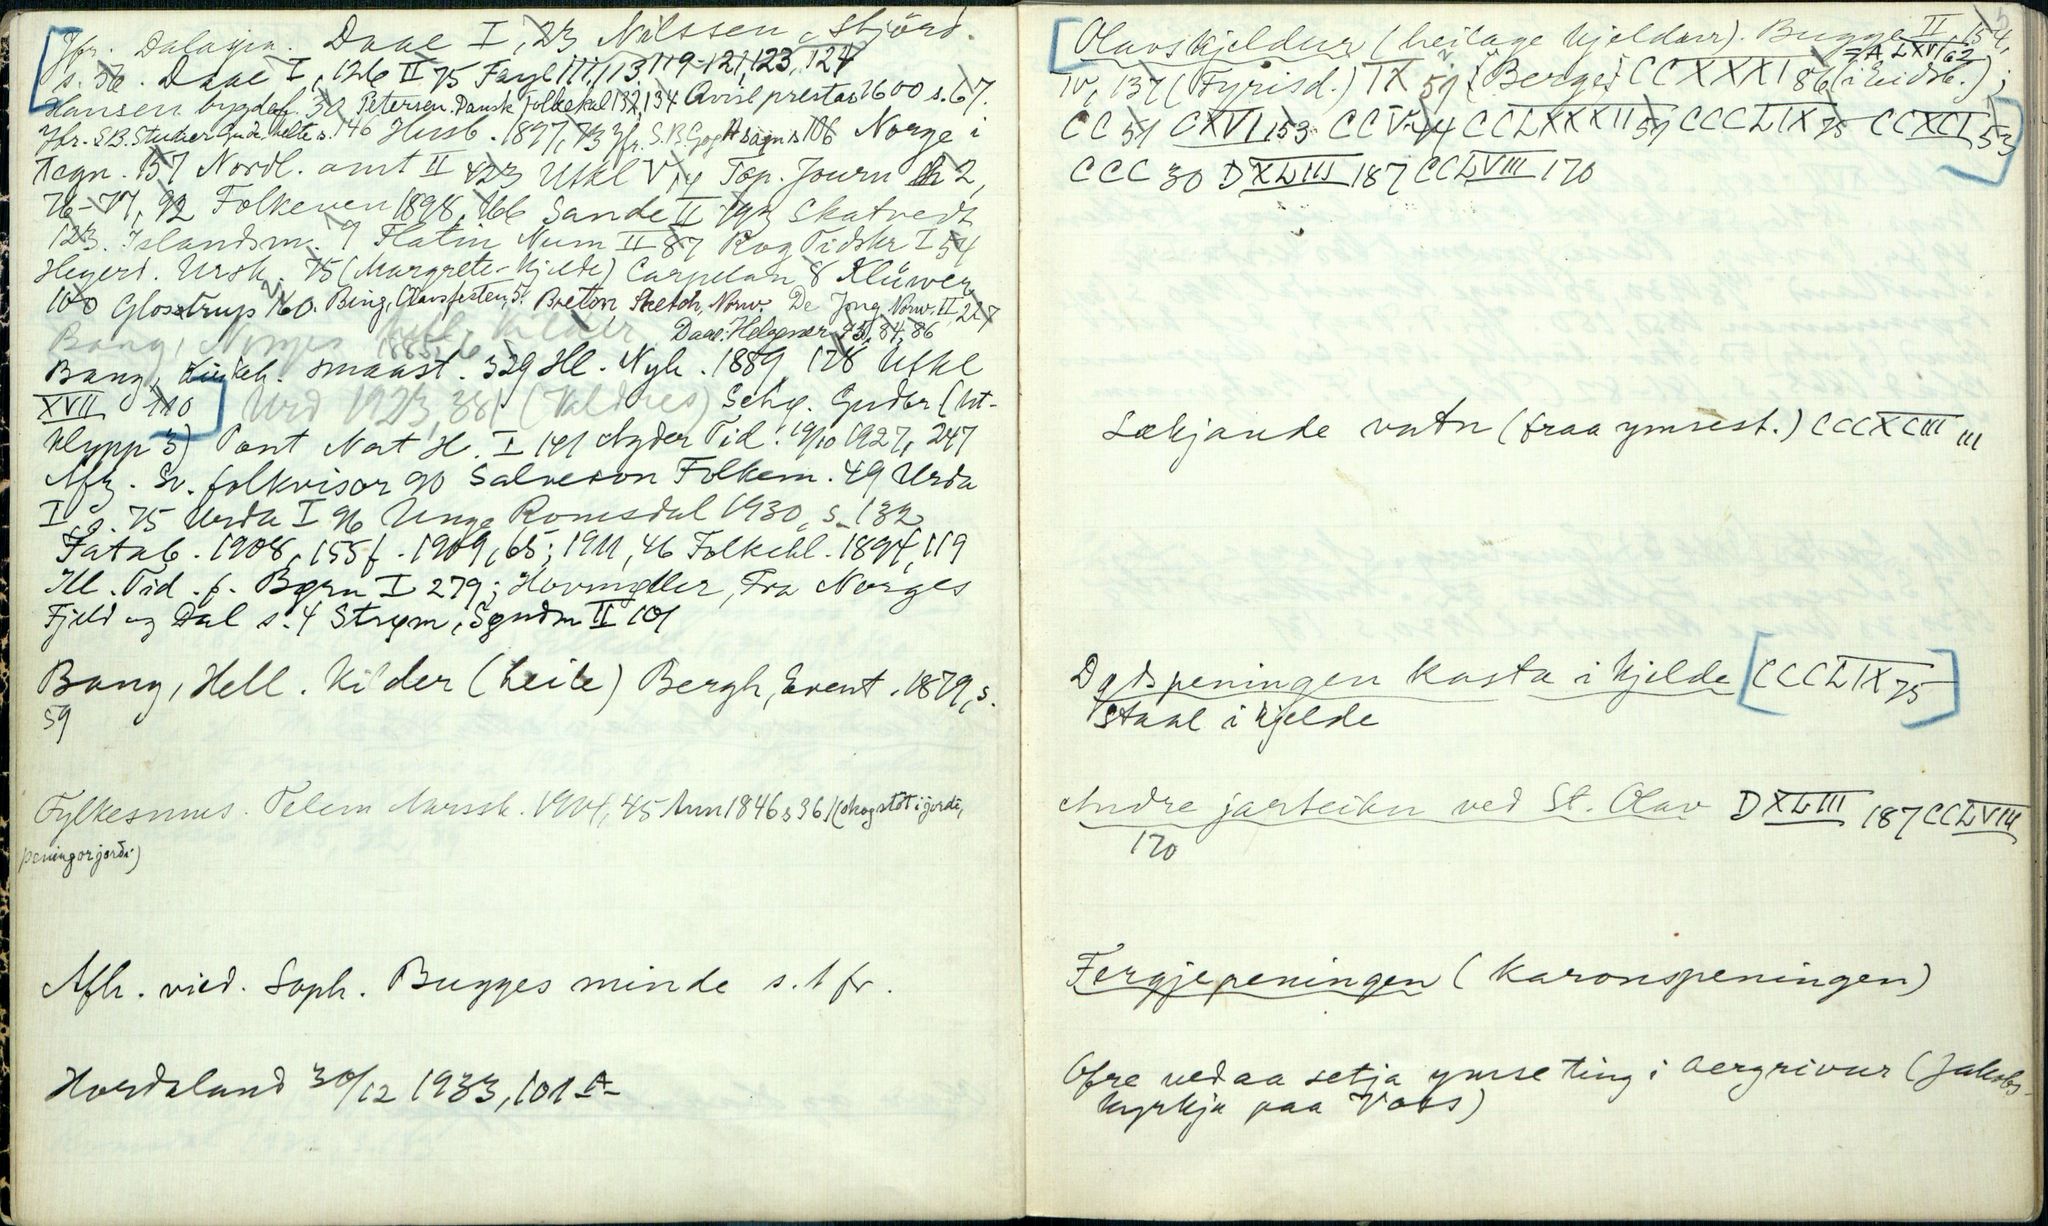 Jfr. Dalagua. Daae I, 23 Nilssen, Stjörd.
s. 36. Daae I, 126 II 75 Faye 111, 113, 119-121, 123, 124
Hansen bygdef. 32 Petersen. Dansk folkekal 132, 134 Avisl prestas 1600 s. 67.
Jfr. S.B. Studier Gude helte s. 146 Husb. 1897, 73 Jfr. S.B. s 106 Norge i
Tegn. 157 Nordl. amt II 423 Utkl V 14 Top. Journ h 2,
76-77, 92 Folkeven 1898, 166 Sande II 193 Skatvedt
123. Islandsm. 9 Flatin Num II 87 Rog Tidskr I 54
Heyerd. Ursk. 75 (Margrete-Kjelde) Carpelan 8 Klüwer
100 Glostrup 160. Bing, Olavsfesten, 5. Breton Sketch. Norw. De Jong Norw. II, 227
Bang, Norges hell. kilder Daae: Helgener 75, 84, 86
1885, 16
Bang, kirkeh. smaast. 329 Hl. Nyh. 1889, 178 Utkl
XVII 110 Urd 1923, 381 (Valdres) Schø. Gudbr (Ut-
klypp 3) Pont Nat H. I 141 Agder Tid. 19/10 1927, 247
Afz. Sv. folkvisor 90 Salveson Folkem. 49 Urda
I s. 75 Urda I 96 Unge Romsdal 1930, s. 132
Fatab. 1908, 155 f. 1909, 65; 1911, 46 Folkebl. 1894, 119
Ill. Tid. f. Børn I 279; Hovmøller, Fra Norges
Fjeld og Dal s. 4 Strøm, Søndm II 101
Bang, Hell. kilder (heile) Bergh, Event. 1879, s.
59
Fylkesmus. Telem Aarssk. 1904, 45 Aun 1846 s 36 (skogstöt i jordi,
peningar i jordi)
Afh. vied. Soph. Bugges minde s. 1 fr.
Hordaland 30/12 1933, 101 A
Olavskjeldur (heilage kjeldur). Bugge II, 154,
= A LXVI 62
IV, 137 (Fyrisd.) IX 59 (Berge) CCXXXI 86 (i Eidsb.);
CC 51 CXVI 153 CCV 44 CCLXXXII 59 CCCLIX 75 CCXCI 53
CCC 30 DXLIII 187 CCLVIII 170
Lækjande vatn (fraa ymsest.) CCCXCIII 111
Dødspeningen kasta i kjelde CCCLIX 75
Staal i kjelde
Andre jarteikn ved St. Olav DXLIII 187 CCLVIII
170
Fergjepeningen (karonspeningen)
Ofre ved aa setja ymse ting i bergrivur (Jakobs-
kyrkja paa Voss)